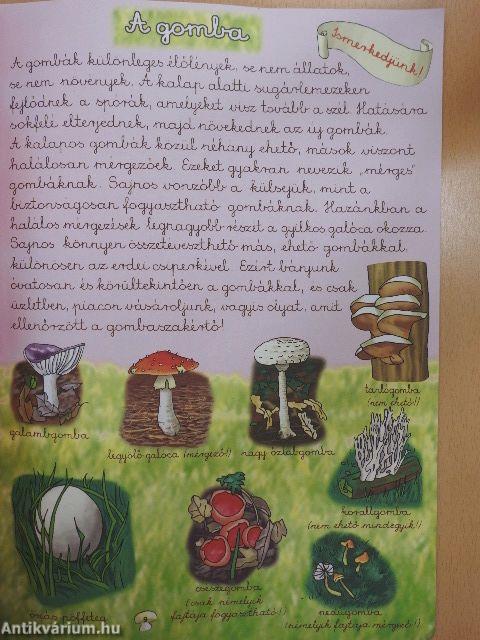 A gomba
Ismerkedjünk!
A gombák különleges élőlények, se nem állatok,
se nem növények. A kalap alatti sugárlemezeken
fejlődnek a spórák, amelyeket visz tovább a szél. Hatására
sokfelé elterjednek, majd növekednek az új gombák.
A kalapos gombák közül néhány ehető, mások viszont
halálosan mérgezőek. Ezeket gyakran nevezik „mérges"
gombáknak. Sajnos vonzóbb a külsejük, mint a
biztonságosan fogyasztható gombáknak. Hazánkban a
halálos mérgezések legnagyobb részét a gyilkos galóca okozza.
Sajnos könnyen összetéveszthető más, ehető gombákkal,
különösen az erdei csiperkével. Ezért bánjunk
óvatosan és körültekintően a gombákkal, és csak
üzletben, piacon vásároljunk, vagyis olyat, amit
ellenőrzött a gombaszakértő!
galambgomba
légyölő galóca (mérgező!)
nagy őzlábgomba
taplógomba
(nem ehető!)
korallgomba
(nem ehető mindegyik!)
óriás pöfeteg
csészegomba
(csak némelyik
fajtája fogyasztható!)
nedűgomba
(némelyik fajtája mérgező!)
Antikvárium.hu